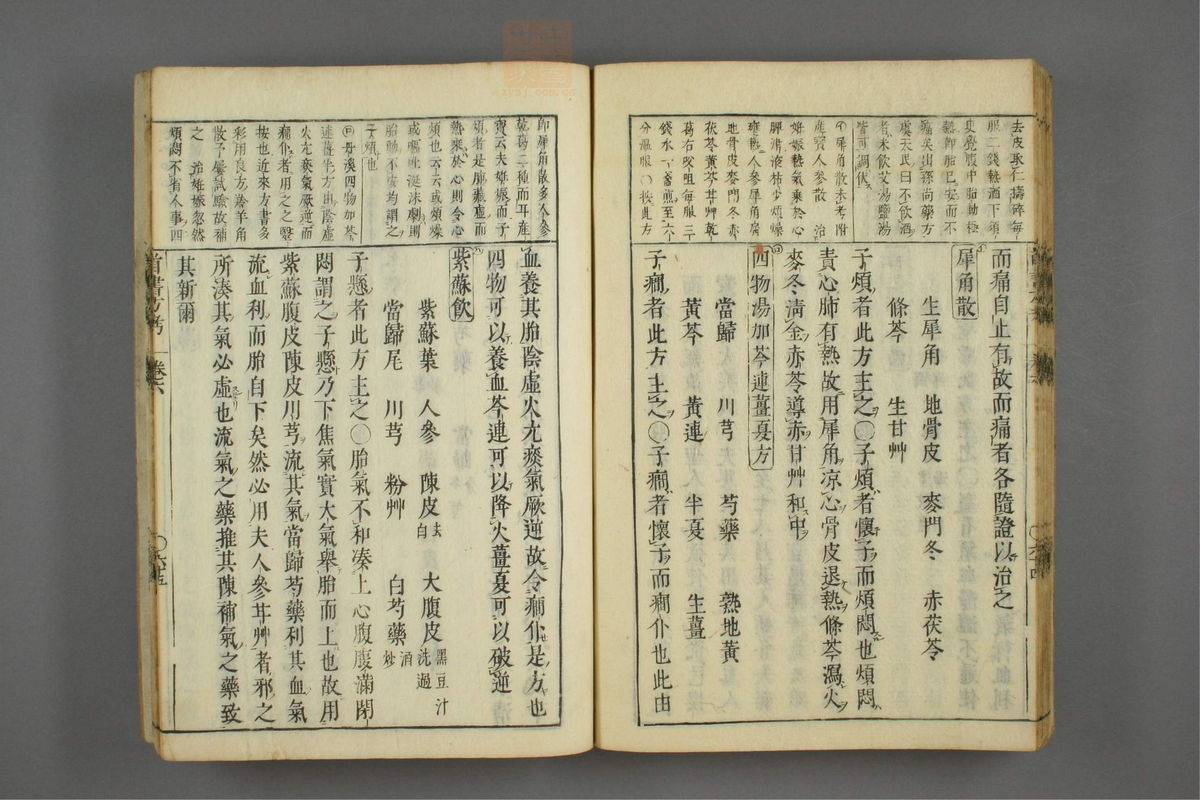 去皮取仁擣碎每
服二錢熱酒下須
臾覺腹中胎動極
熱卽胎已安而不
痛矣出孫尚藥方
虞天民曰不飲酒
者米飲艾湯鹽湯
皆可調伏
犀角散未考附
産寳人參散 治
妊娠熱氣乗於心
脾津液枯少煩燥
壅熱人參犀角腐
地骨皮麥門冬赤
茯苓黄芩甘艸乾
葛右㕮咀每服三
錢水一盞煎至六
分温服○按此方
而痛自止有故而痛者各隨證以治之
犀角散
生犀角 地骨皮 麥門冬 赤茯苓
條芩 生甘艸
子煩者此方主之○子煩者懷子而煩悶也煩悶
責心肺有熱故用犀角凉心骨皮退熱條芩瀉火
麥冬淸金赤苓導赤甘艸和中
四物湯加芩連薑夏方
當歸 川芎 芍藥 熟地黄
黄芩 黄連 半夏 生薑
子癇者此方主之○子癇者懷子而癇仆也此由
卽犀角散多人參
乾葛二種而耳産
寳云夫妊娠而子
煩者是腑臟虚而
熱乗於心則令心
煩也云云或煩燥
或嘔吐涎沫劇則
胎動不安均謂之
子煩也
丹溪四物加芩
連薑半方由陰虚
火亢痰氣厥逆而
癇仆者用之之毉
按也近來方書多
彩用良方羚羊角
散予屢試驗故補
之 治妊娠忽然
頄悶不省人事四
血養其胎陰虚火亢痰氣厥逆故令癇仆是方也
四物可以養血芩連可以降火薑夏可以破逆
紫蘇飲
紫蘇葉 人參 陳皮去白 大腹皮黑豆汁洗過
當歸尾 川芎 粉艸 白芍藥酒炒
子懸者此方主之○胎氣不和湊上心腹腹滿閉
悶謂之子懸乃下焦氣實大氣舉胎而上也故用
紫蘇腹皮陳皮川芎流其氣當歸芍藥利其血氣
流血利而胎自下矣然必用夫人參甘艸者邪之
所湊其氣必虚也流氣之藥推其陳補氣之藥致
其新爾
首書方考 卷六 六十五